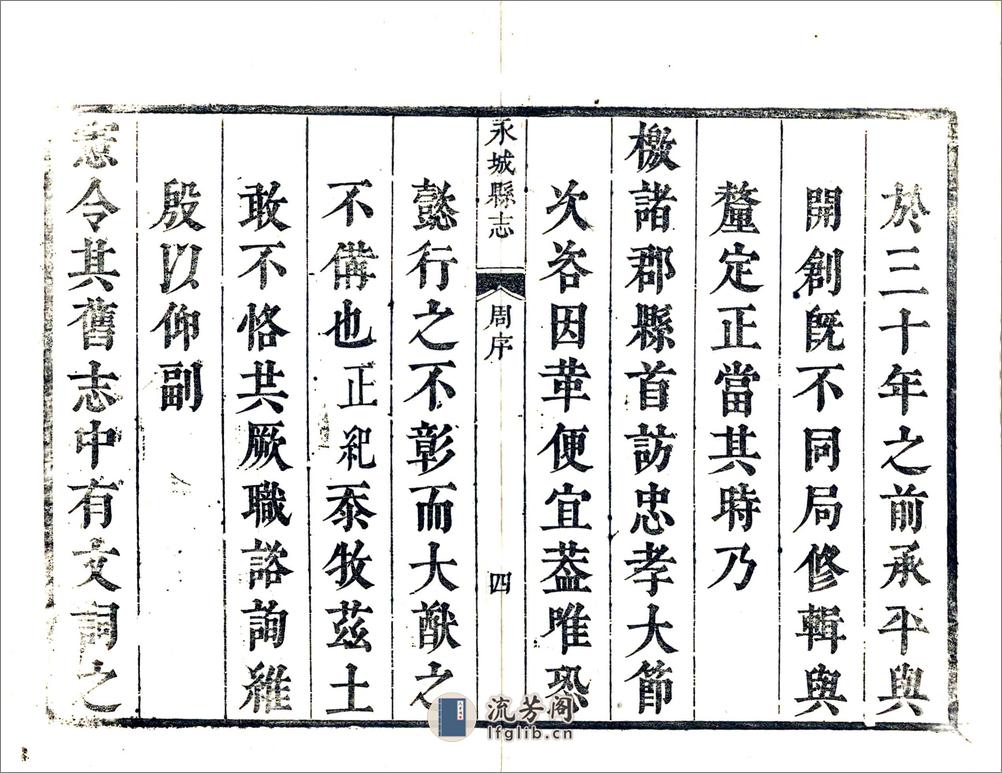 於三十年之前承平與
開創旣不同局修輯與
釐定正當其時乃
檄諸郡縣首訪忠孝大節
次咨因革便宜葢唯恐
永城縣志 周序 四
懿行之不彰而大猷之
不備也正紀忝牧茲土
敢不恪共厥職諮詢維
殷以仰副
憲令其舊志中有文詞之
流芳阁
lfglib.cn